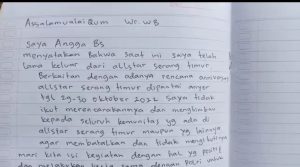 Assalamualai Qum Wr. WB
Saya Angga Bs
menyatakan Bahwa saat ini saya telah
Lama keluar dari allstar serang timur
Berkaitan dengan adanya rencana anniversary
allstar serang timur dipantai anyer
tgl 29-30 oktober 2022 saya tidak
ikut merencanakannya dan menghimbau
kepada seluruh komunitas yg ada di
allstar serang timur maupun yg lainnya
agar membatalkan dan tidak mengikutinya
mari kita isi kegiatan dengan hal yg positif
dan melakukan kerja sama dengan Polri untuk